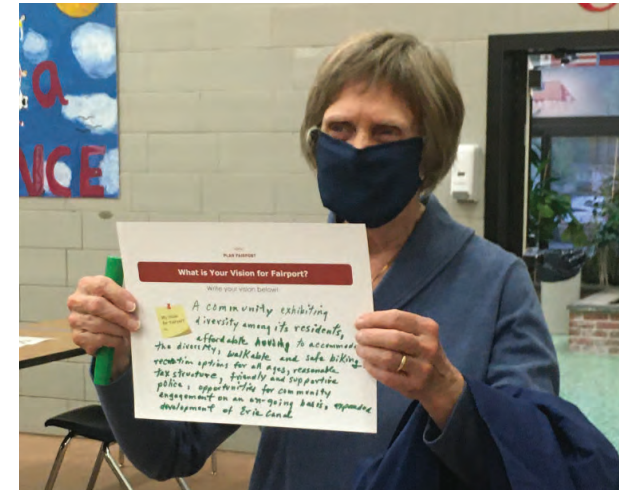 a
NCE
PLAN FAIRPORT
What is Your Vision for Fairport?
Write your vision below!
My Vision
for Fairport
A community exhibiting
diversity among its residents,
affordable housing to accommodate
the diversity, walkable and safe biking,
recreation options for all ages, reasonable
tax structure, friendly and supportive
police, opportunities for community
engagement on an on-going basis, expanded
development of Erie Canal